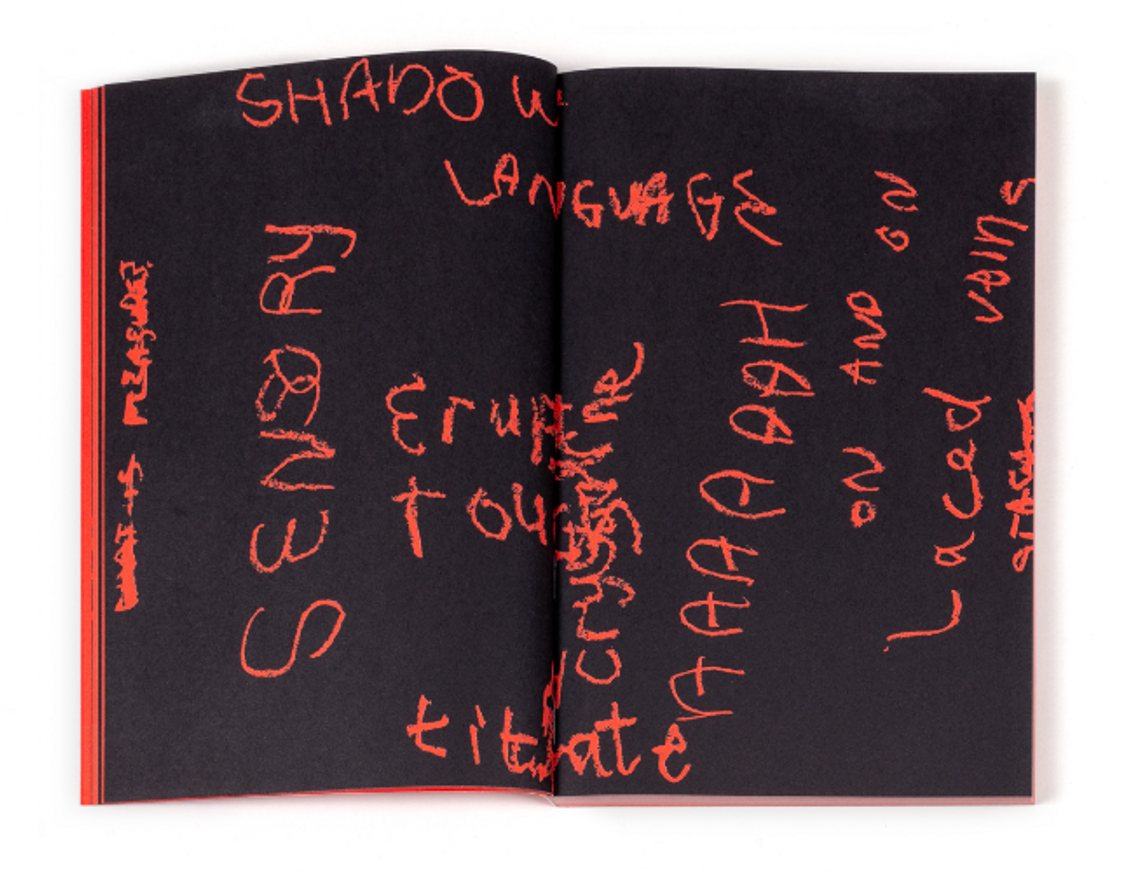 SHADOW
LANGUAGE
WHAT IS PLEASURE?
SENSORY
titrate
AAAAAAH
ON AND ON
Laced veins